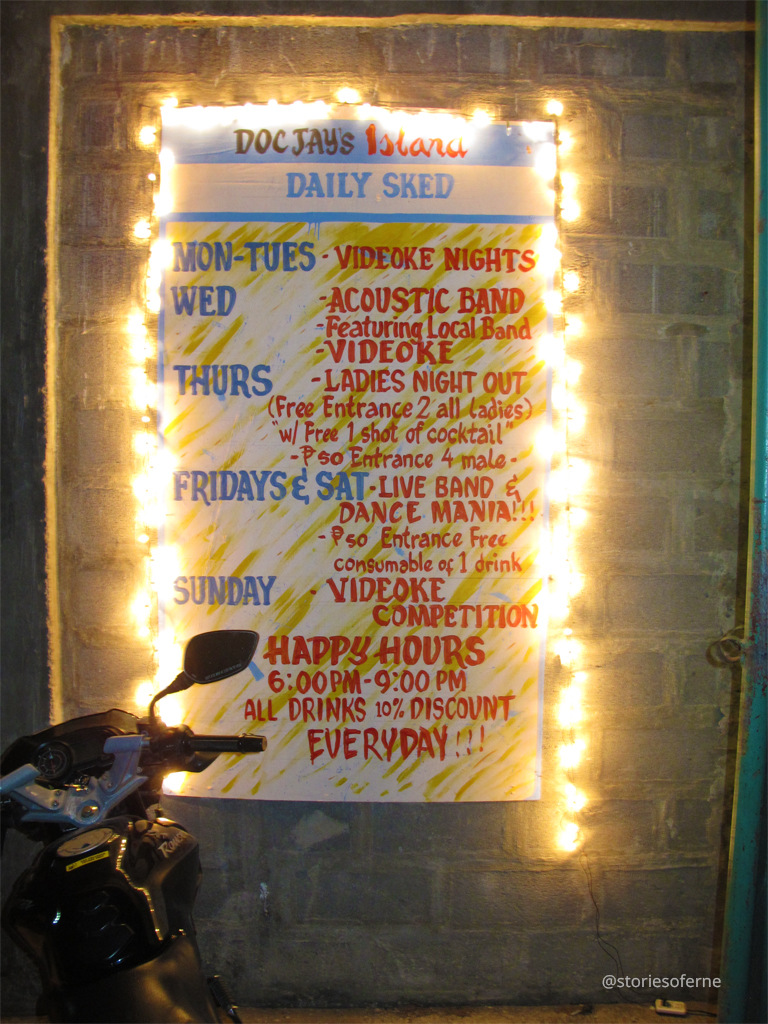 DOC JAY'S Island
DAILY SKED
MON-TUES - VIDEOKE NIGHTS
WED - ACOUSTIC BAND
- Featuring Local Band
- VIDEOKE
THURS - LADIES NIGHT OUT
(Free Entrance 2 all ladies)
"w/ Free 1 shot of cocktail"
- ₱50 Entrance 4 male -
FRIDAYS & SAT - LIVE BAND &
DANCE MANIA!!!
- ₱50 Entrance Free
consumable of 1 drink
SUNDAY - VIDEOKE
COMPETITION
HAPPY HOURS
6:00 PM - 9:00 PM
ALL DRINKS 10% DISCOUNT
EVERYDAY!!!
@storiesoferne